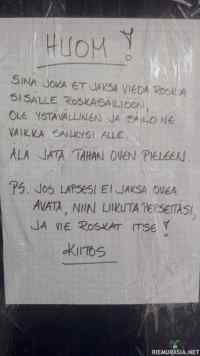 HUOM!
SINÄ JOKA ET JAKSA VIEDÄ ROSKIA
SISÄLLE ROSKASÄILIÖÖN,
OLE YSTÄVÄLLINEN JA SÄILÖ NE
VAIKKA SÄNKYSI ALLE.
ÄLÄ JÄTÄ TÄHÄN OVEN PIELEEN.
PS. JOS LAPSESI EI JAKSA OVEA
AVATA, NIIN LIIKUTA PERSETTÄSI,
JA VIE ROSKAT ITSE!
KIITOS
RIEMURASIA.NET